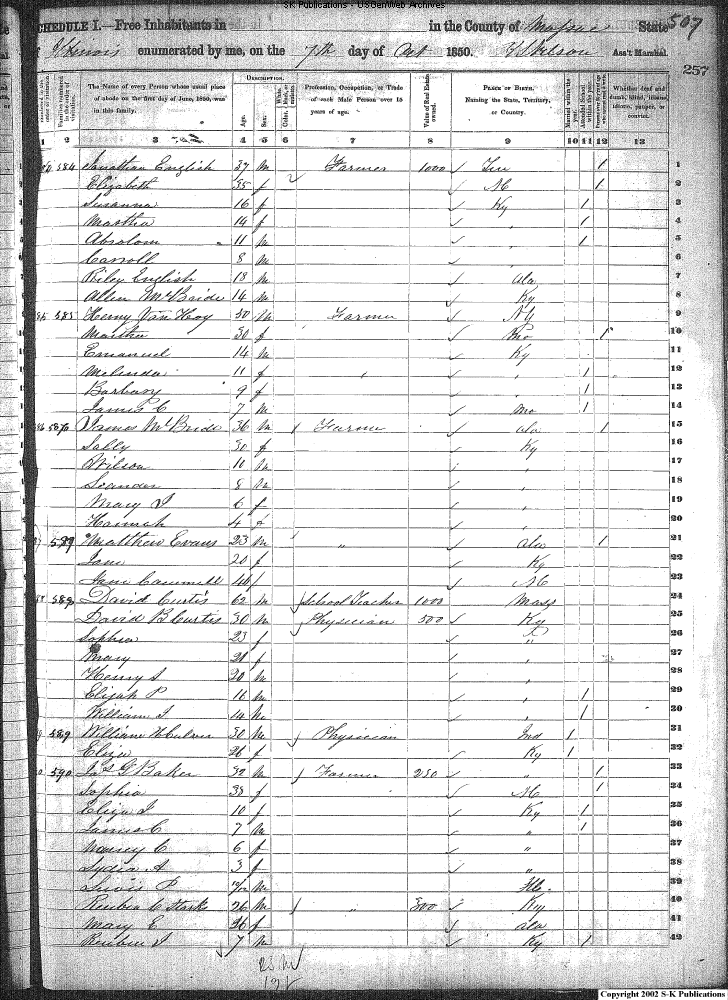 SK Publications - USGenWeb Archives
SCHEDULE I.—Free Inhabitants in in the County of Massac State 507
Illinois enumerated by me, on the 7th day of Oct 1850. Ass't Marshal.
257
Dwelling-houses numbered in the order of visitation.
Families numbered in the order of visitation.
The Name of every Person whose usual place of abode on the first day of June, 1850, was in this family.
DESCRIPTION.
Age.
Sex.
Color, White, black, or mulatto.
Profession, Occupation, or Trade of each Male Person over 15 years of age.
Value of Real Estate owned.
PLACE OF BIRTH.
Naming the State, Territory, or Country.
Married within the year.
Attended School within the year.
Whether deaf and dumb, blind, insane, idiotic, pauper, or convict.
1 2 3 4 5 6 7 8 9 10 11 12 13
584 Jonathan English 37 M Farmer 1000 Ten 1 1
Elizabeth 35 f NC 1 2
Susanna 16 f Ky 1 3
Martha 14 f " 1 4
Absolom 11 M " 1 5
Carroll 8 M 6
Riley English 18 M Ala 7
Allen McBride 14 M Ky 8
585 Henry Van Hoy 50 M Farmer NC 9
Martha 30 f Mo 1 10
Emanuel 14 M Ky 11
Melinda 11 f " 1 12
Barbary 9 f " 1 13
James C 7 M Mo 1 14
586 James McBride 36 M Farmer Ala 1 15
Sally 30 f Ky 16
Wilson 10 M " 17
Leander 8 M " 18
Mary J 6 f " 19
Hannah 4 f " 20
Matthew Evans 23 M " Ala 1 21
Jane 20 f Ky 22
Jane Cammell 46 f NC 23
David Curtis 62 M School Teacher 1000 Mass 24
David B Curtis 30 M Physician 500 Ky 25
Sophia 23 f " 26
Mary 21 f " 27
Henry S 20 M " 28
Elijah P 16 M " 1 29
William J 14 M " 1 30
589 William H Culver 30 M Physician Ind 1 31
Eliza 26 f Ky 1 32
590 Jas G Baker 32 M Farmer 250 " 1 33
Sophia 38 f NC 1 34
Eliza J 10 f Ky 1 35
James C 7 M " 1 36
6 f " 37
Lydia A 3 f " 38
P M Ill. 39
Reuben C Stark 26 M " 300 Ky 40
Mary E 26 f Ala 41
Reuben J 7 M Ky 1 42
Copyright 2002 S-K Publications